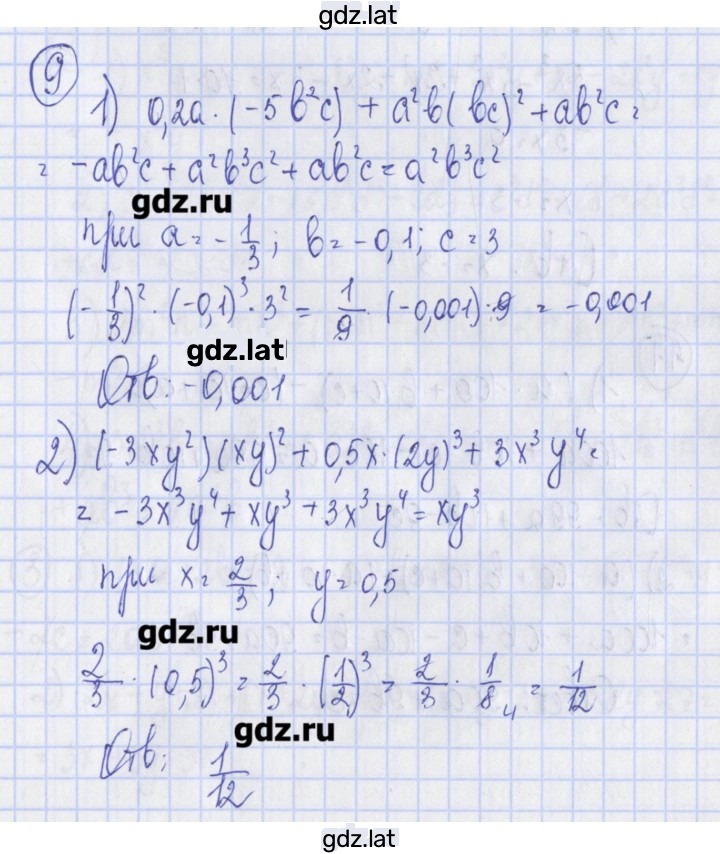 gdz.lat
9
1) 0,2a · (-5b²c) + a²b(bc)² + ab²c =
= -ab²c + a²b³c² + ab²c = a²b³c²
gdz.ru
при a = -1/3; b = -0,1; c = 3
(-1/3)² · (-0,1)³ · 3² = 1/9 · (-0,001) · 9 = -0,001
gdz.lat
Отв: -0,001
2) (-3xy²)(xy)² + 0,5x · (2y)³ + 3x³y⁴ =
= -3x³y⁴ + xy³ + 3x³y⁴ = xy³
при x = 2/3; y = 0,5
gdz.ru
2/3 · (0,5)³ = 2/3 · (1/2)³ = 2/3 · 1/8 4 = 1/12
gdz.ru
Отв: 1/12
gdz.lat